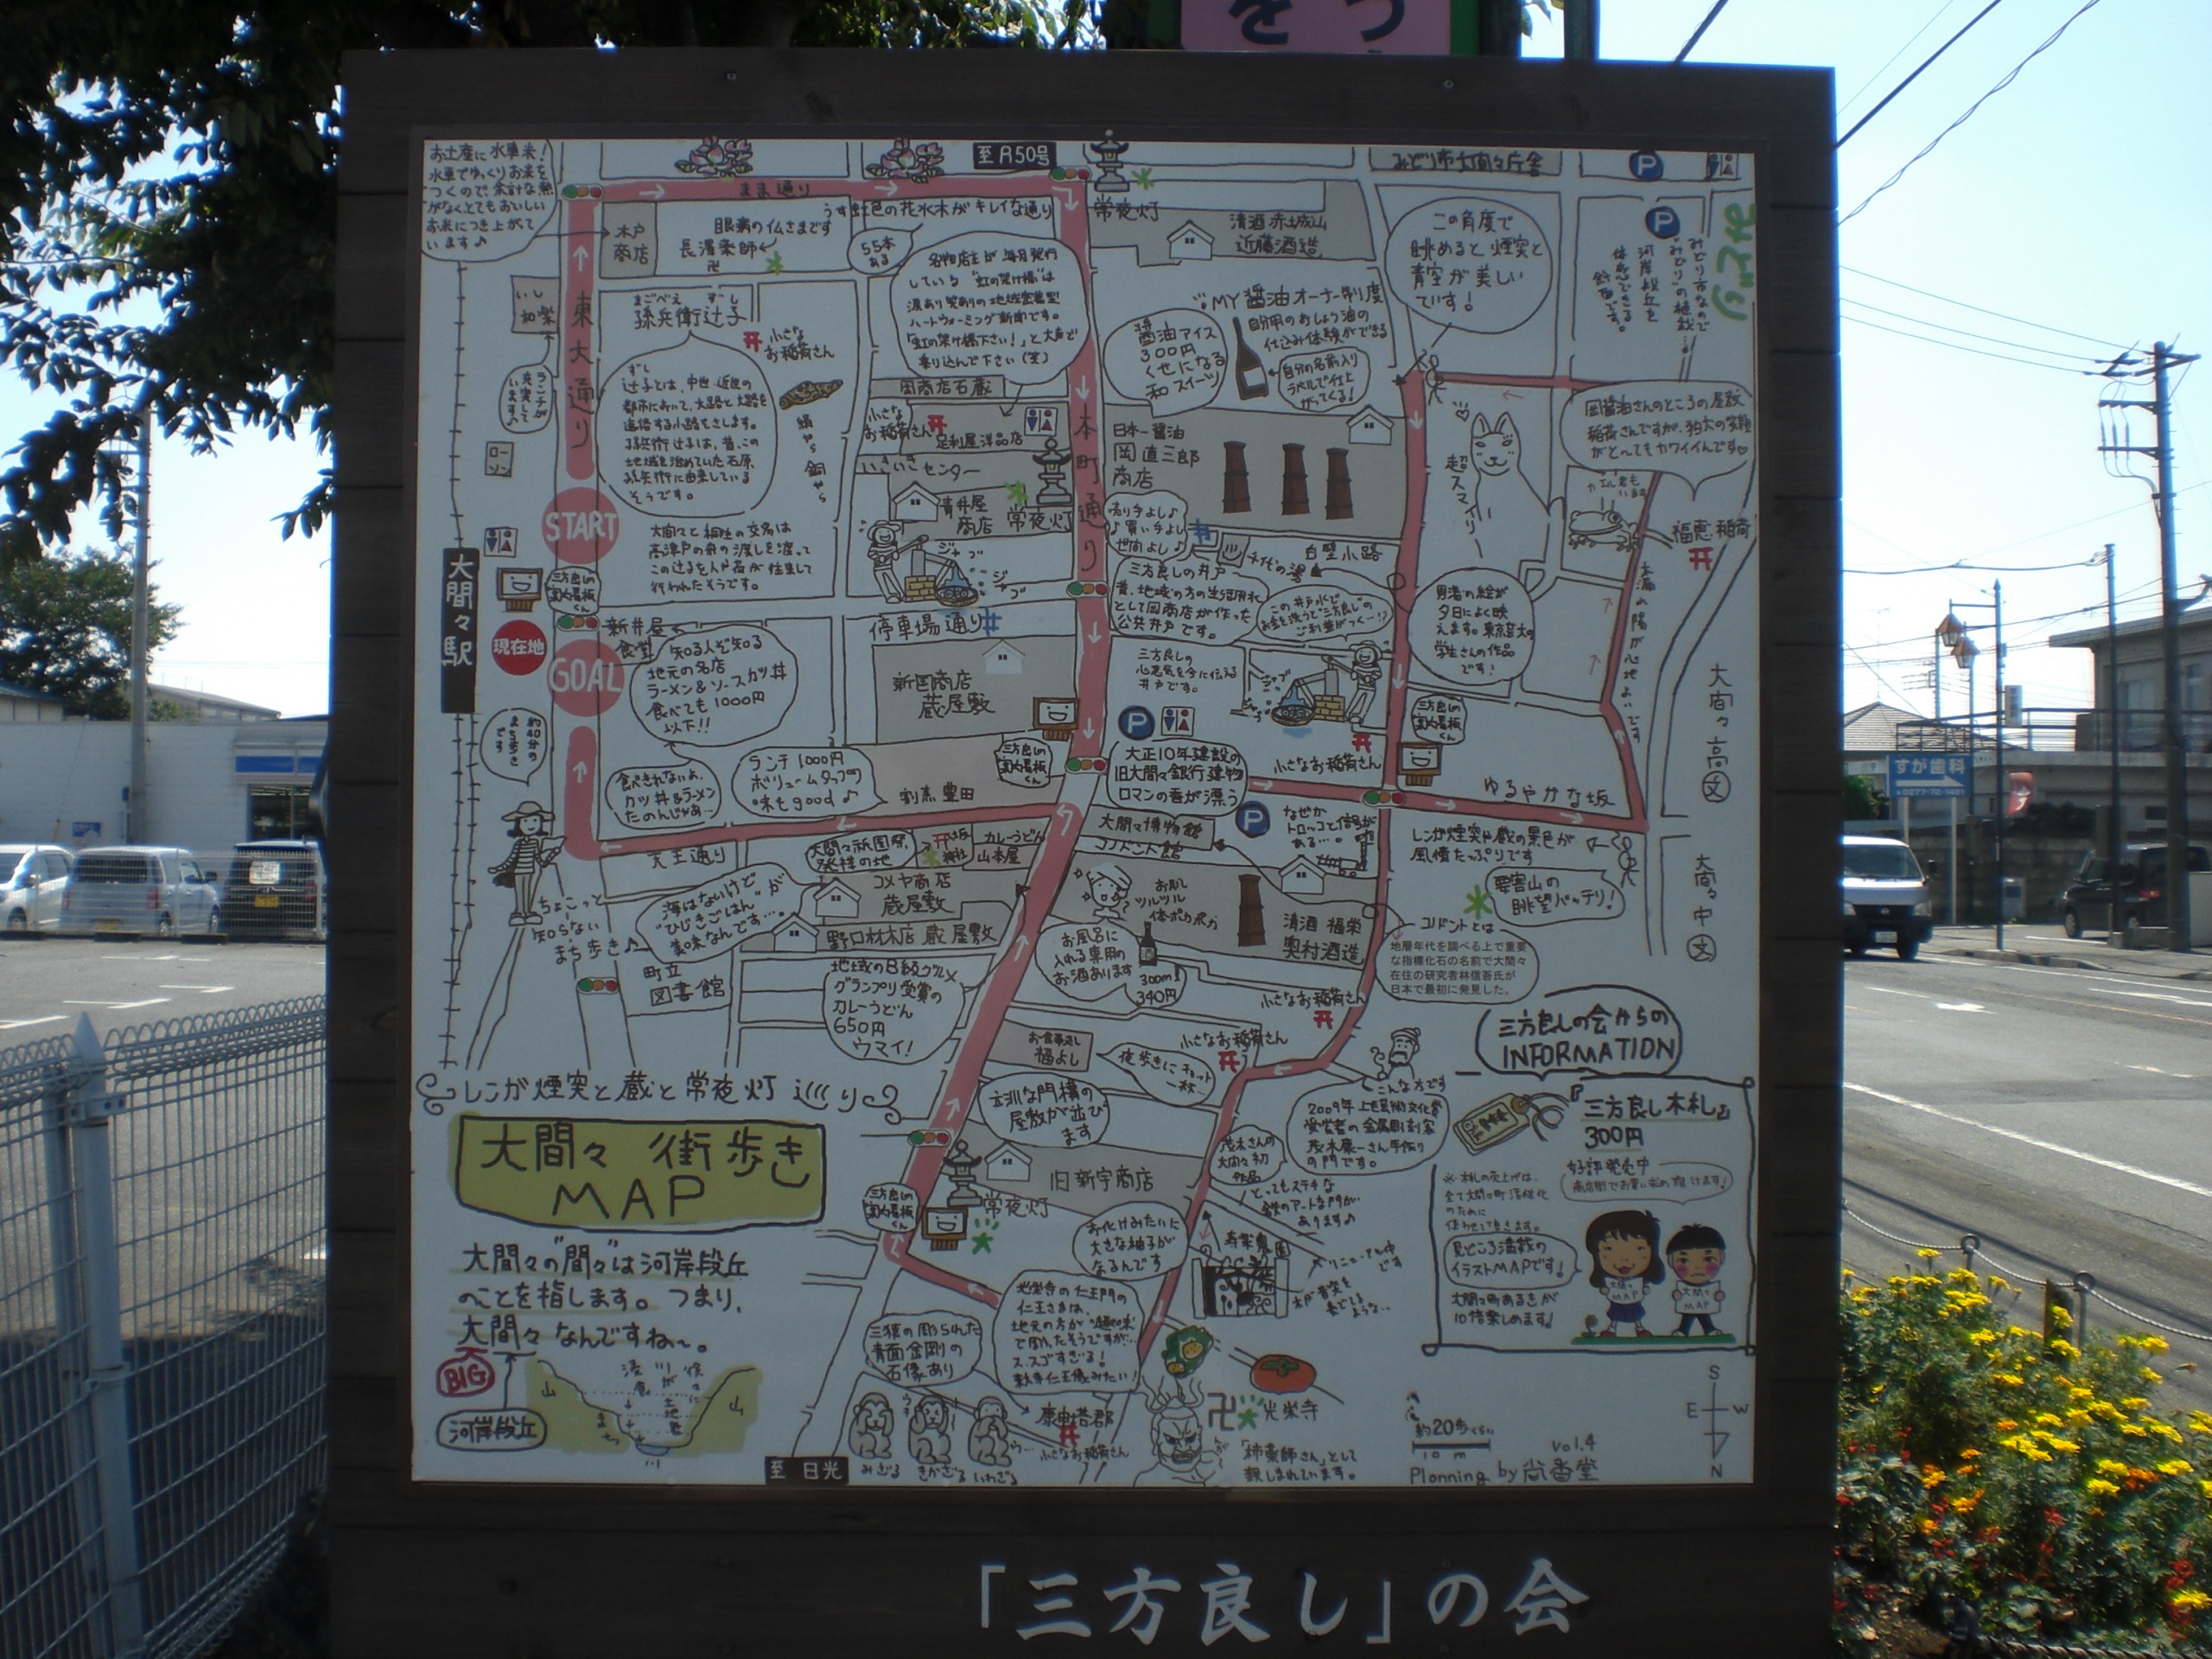 をつ
お土産に水車米!
水車でゆっくりお米を
つくので余計な熱
がなくとてもおいしい
お米につき上がて
います♪
至R50号
みどり市大間々庁舎
P
まま通り
うす虹色の花水木がキレイな通り
55本
ある
木戸
商店
眼病の仏さまです
長澤薬師
常夜灯
清酒 赤城山
近藤酒造
この角度で
眺めると煙突と
青空が美しい
です!
P
みどり市なので
"みどり"の植栽…!
河岸段丘を
体感できる
斜面です。
みどり
いし
和楽
ランチが
充実して
います♪
東大通り
まごべえ ずし
孫兵衛辻子
小さな
お稲荷さん
ずし
辻子とは、中世・近世の
都市において、大路と大路を
連絡する小路をさします。
孫兵衛辻子は、昔、この
地域を治めていた石原
孫兵衛に由来している
そうです。
名物店主が毎月発行
している"虹の架け橋"は
涙あり笑ありの地域密着型
ハートウォーミング新聞です。
「虹の架け橋下さい!」と大声で
乗り込んで下さい(笑)
岡商店石蔵
小さな
お稲荷さん
足利屋洋品店
いきいきセンター
青井屋
商店
常夜灯
本町通り
醤油アイス
300円
くせになる
和スイーツ
"MY醤油オーナー制度"
自分用のおしょう油の
仕込み体験ができる
自分の名前入り
ラベルで仕上
がってくる!
日本一醤油
岡直三郎
商店
超スマイリー
岡醤油さんのところの屋敷
稲荷さんですが、独大の笑顔
がと〜てもカワイイんです
カエル君も
います
福恵稲荷
ローソン
START
大間々と桐生の交易は
高津戸の舟の渡しを渡って
この辻子を人や荷が往来して
行われたそうです。
売り手よし♪
買い手よし
世間よし♪
千代の湯
白壁小路
三方良しの井戸
昔、地域の方の生活用水
として岡商店が作った
公共井戸です。
この井戸水で
お金を洗うと"三方良し"の
ご利益がつく…!?
男湯の絵が
夕日によく映
えます。東京芸大の
学生さんの作品
です!
大間々駅
三方良しの
案内看板
くん
現在地
新井屋
食堂
GOAL
知る人ぞ知る
地元の名店
ラーメン&ソースカツ丼
食べても1000円
以下!!
食べきれないよ、
カツ丼&ラーメン
したのんじゃあ…
ジャブ
ジャブ
停車場通り
新国商店
蔵屋敷
三方良しの
心意気を今に伝える
井戸です。
ジャブ
ジャブ
三方良しの
案内看板
くん
三方良しの
案内看板
くん
約40分の
まち歩き
です
ランチ1000円
ボリュームタップリ
味もgood♪
割烹 豊田
P
大正10年建設の
旧大間々銀行建物
ロマンの香が漂う
小さなお稲荷さん
ゆるやかな坂
木漏れ陽が心地よいです
大間々高
文
大間々中
文
天王通り
大間々祇園祭
発祥の地
カレーうどん
山本屋
大間々博物館
コノドント館
P
なぜか
トロッコと信号が
ある…。
レンガ煙突や蔵の景色が
風情たっぷりです
要害山の
眺望バッチリ!
ちょこっと
知らない
まち歩き♪
海はないけど
"ひじきごはん"が
美味なんです…。
町立
図書館
コメヤ商店
蔵屋敷
野口材木店 蔵屋敷
地域のB級グルメ
グランプリ受賞の
カレーうどん
650円
ウマイ!
お肌
ツルツル
体ポカポカ
お風呂に
入れる専用の
お酒あります
300ml
340円
清酒 福栄
奥村酒造
コノドントとは
地層年代を調べる上で重要
な指標化石の名前で大間々
在住の研究者林信吾氏が
日本で最初に発見した。
小さなお稲荷さん
小さなお稲荷さん
お食事処
福よし
夜歩きにチョット
一杯…
立派な門構の
屋敷が並び
ます
こんな方です
2009年 上毛芸術文化賞
受賞者の金属彫刻家
茂木康一さん手作り
の門です。
茂木さんの
大間々初
作品
とってもステキな
鉄のアートな門が
あります♪
三方良しの会からの
INFORMATION
『三方良し木札』
300円
好評発売中
商店街でお買い求め頂けます!
※木札の売上げは、
全て大間々町活性化
のために
使わせて頂きます。
見どころ満載の
イラストMAPです!
大間々町あるきが
10倍楽しめます!
大間々
MAP
大間々
MAP
レンガ煙突と蔵と常夜灯巡り
大間々 街歩き
MAP
旧新宇商店
常夜灯
三方良しの
案内看板
くん
お化けみたいに
大きな柚子が
なるんです
寿楽園
リニューアル中
です
大間々の"間々"は河岸段丘
のことを指します。つまり、
大間々なんですね〜。
BIG
河岸段丘
山
山
川
まま
三猿の彫られた
青面金剛の
石像あり
光栄寺の仁王門の
仁王さまは、
地元の方が"趣味"
で彫ったそうですが…
ス、スゴすぎる!
東大寺仁王像みたい!
みざる
きかざる
いわざる
庚申塔郡
小さなお稲荷さん
光栄寺
「柿薬師さん」として
親しまれています。
至 日光
約20歩くらい
10m
vol.4
Planning by 尚番堂
S
E W
N
「三方良し」の会
すが歯科
0277-72-1401